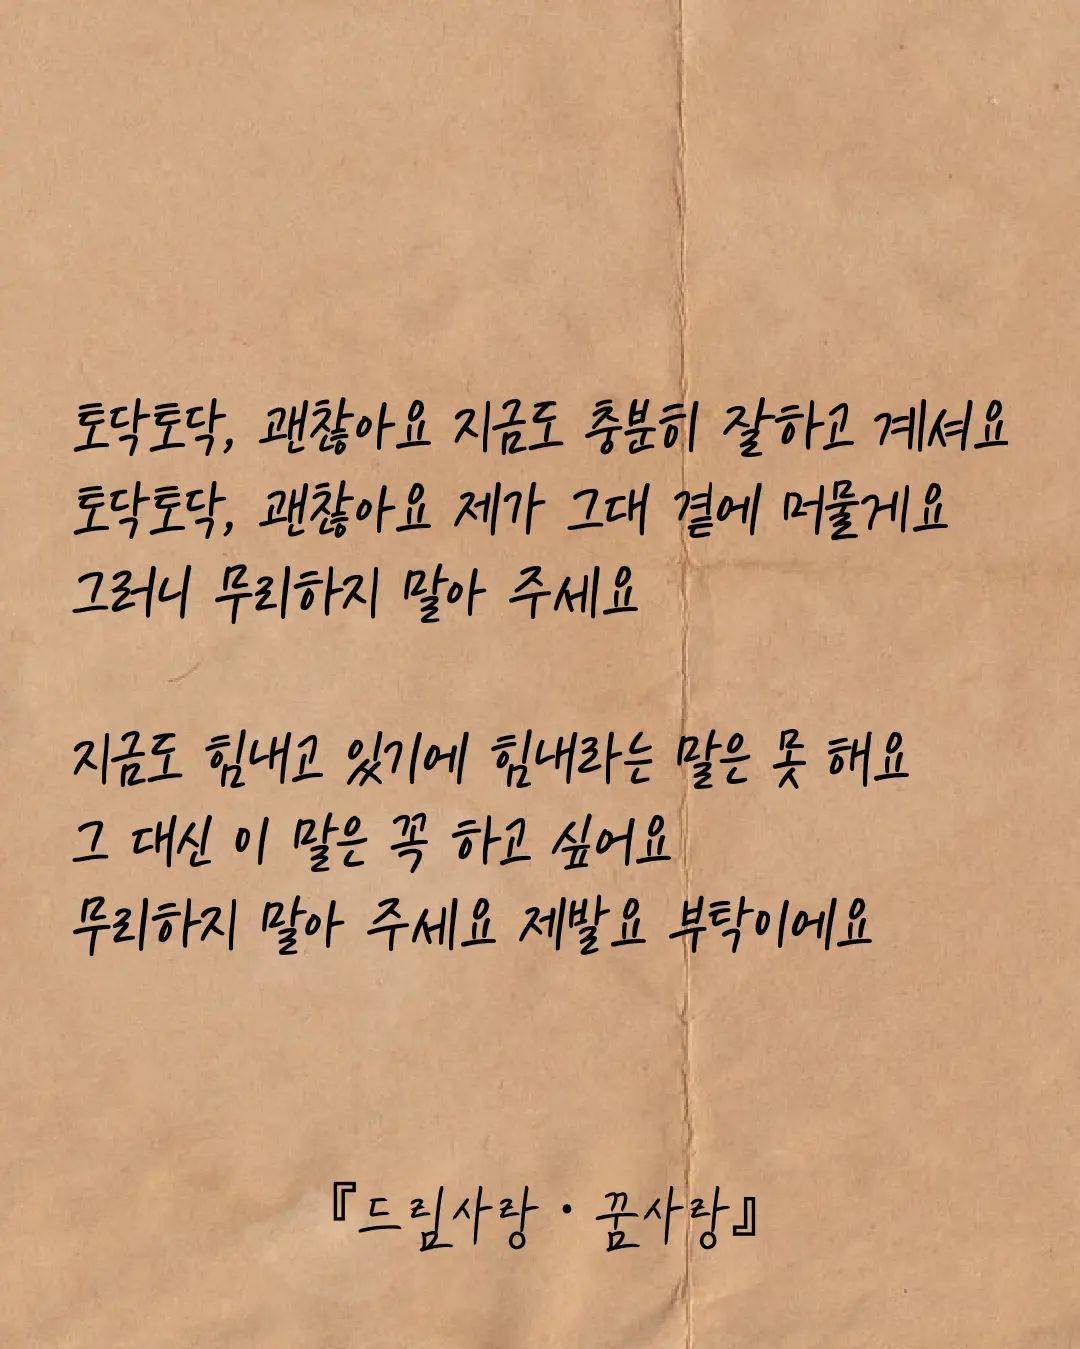 토닥토닥, 괜찮아요 지금도 충분히 잘하고 계셔요
토닥토닥, 괜찮아요 제가 그대 곁에 머물게요
그러니 무리하지 말아 주세요
지금도 힘내고 있기에 힘내라는 말은 못 해요
그 대신 이 말은 꼭 하고 싶어요
무리하지 말아 주세요 제발요 부탁이에요
『드림사랑 • 꿈사랑』